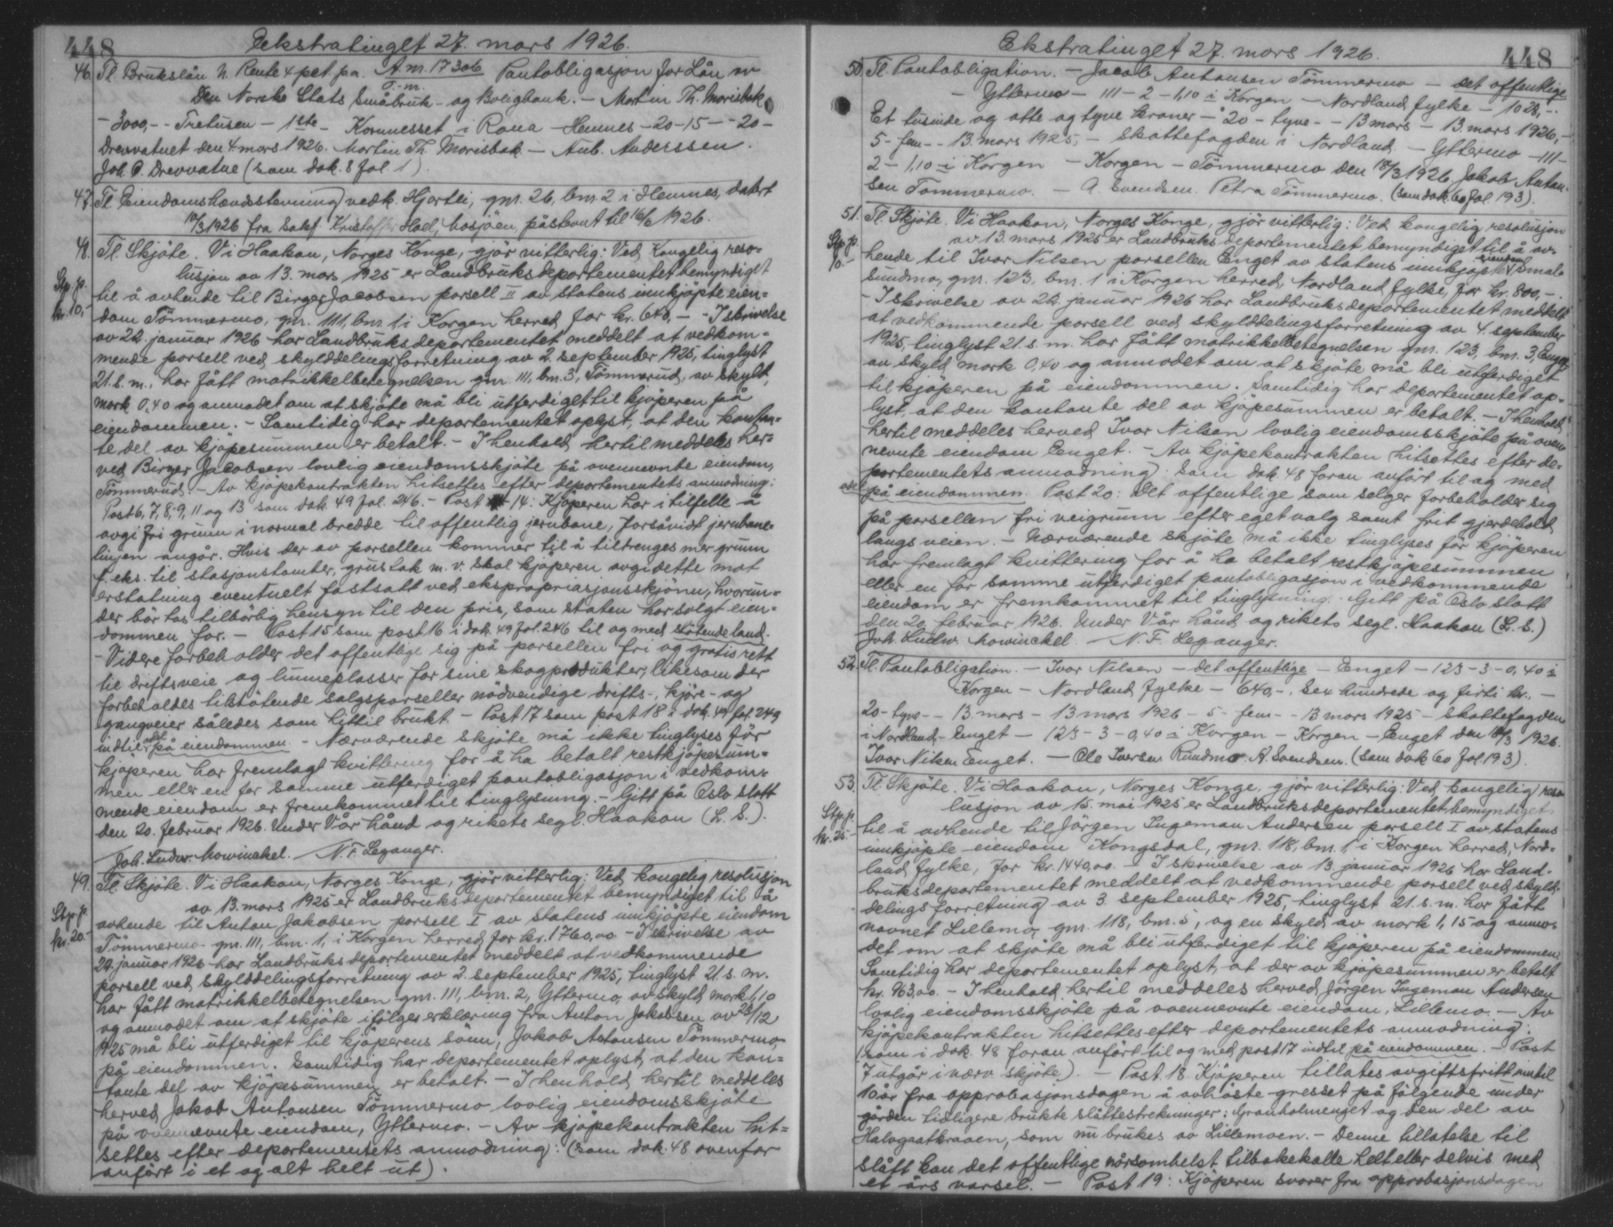 448
Ekstratinget 27. mars 1926.
46. Tl. Brukslån N. Rente 4 pct. pa. A.m. 17306 Pantobligasjon for Lån av
Den Norske Stats Småbruk- og Boligbank. - Martin Th. Morisbak
- 3000,- - Tretusen - 1ste - Kornnesset i Rana - Hemnes - 20-15 - - 20 -
Drevvatnet den 4 mars 1926. Martin Th. Morisbak - Anb. Anderssen.
Joh. P. Drevvatne (som dok. 8 fol 1).
47. Tl. Eiendomshævdsstevning vedk. Hjortli, gnr. 26, bnr. 2 i Hemnes, datert
3/1926 fra Kristoffer Hoel, Røsjøen, påstevnt til 1926.
48. Tl. Skjøte. Vi Haakon, Norges Konge, gjör vitterlig: Ved Kongelig reso-
Stp. p.
kr. 10,-
lusjon av 13. mars 1925 er Landbruksdepartementet bemyndiget
til å avhende til Birger Jacobsen parsell II av statens innkjøpte eien-
dom Tömmermo, gnr. 111, bnr. 1 i Korgen herred for kr. 640,- - I skrivelse
av 22. januar 1926 har Landbruksdepartementet meddelt at vedkom-
mende parsell ved skylddelingsforretning av 2. september 1925, tinglyst
21. s. m., har fått matrikkelbetegnelsen gnr. 111, bnr. 3, Tömmerud, av skyld
mark 0,40 og anmodet om at skjøte må bli utferdiget til kjøperen på
eiendommen. - Samtidig har departementet oplyst, at den kontan-
te del av kjøpesummen er betalt. - I henhold hertil meddeles her-
ved Birger Jacobsen lovlig eiendomsskjøte på ovennevnte eiendom,
Tömmerud. - Av kjøpekontrakten hitsettes efter departementets anmodning:
Post 6, 7, 8, 9, 11 og 13 som dok. 49 fol. 246. - Post 14: Kjøperen har i tilfelle å
avgi fri grunn i normal bredde til offentlig jernbane, forsåvidt jernbane-
linjen angår. Hvis der av parsellen kommer til å tiltrenges mer grunn
f. eks. til stasjonstomter, grustak m. v. skal kjøperen avgi dette mot
erstatning eventuelt fastsatt ved ekspropriasjonsskjønn, hvorun-
der bör tas tilbörlig hensyn til den pris, som staten har solgt eien-
dommen for. - Post 15 som post 16 i dok. 49 fol. 246 til og med støtende land.
- Videre forbeholder det offentlige sig på parsellen fri og gratis rett
til driftsveie og lunneplasser for sine skogprodukter, likesom der
forbeholdes tilstötende salgsparseller nödvendige drifts-, kjöre- og
gangveier således som hittil brukt. - Post 17 som post 18 i dok. 49 fol. 249
indtil "på eiendommen. - Nærværende skjøte må ikke tinglyses för
kjøperen har fremlagt kvittering for å ha betalt restkjøpesum-
men eller en for samme utferdiget pantobligasjon i vedkom-
mende eiendom er fremkommet til tinglysning. - Gitt på Oslo slott
den 20. februar 1926. Under Vår hånd og rikets segl. Haakon (L. S.).
Joh. Ludw. Mowinckel. N. F. Leganger.
49. Tl. Skjøte. Vi Haakon, Norges Konge, gjör vitterlig: Ved kongelig resolusjon
Stp. p.
kr. 20.-
av 13. mars 1925 er Landbruksdepartementet bemyndiget til å
avhende til Anton Jakobsen parsell I av statens innkjøpte eiendom
Tömmermo gnr. 111, bnr. 1, i Korgen herred for kr. 1760,00 - I skrivelse av
22. januar 1926 har Landbruksdepartementet meddelt at vedkommende
parsell ved skylddelingsforretning av 2. september 1925, tinglyst 21 s. m.
har fått matrikkelbetegnelsen gnr. 111, bnr. 2, Yttermo, av skyld mark 1,10
og anmodet om at skjøte ifölge erklæring fra Anton Jakobsen av /12
1925 må bli utferdiget til kjøperens sönn, Jakob Antonsen Tömmermo,
på eiendommen. Samtidig har departementet oplyst, at den kon-
tante del av kjøpesummen er betalt. - I henhold hertil meddeles
herved Jakob Antonsen Tömmermo lovlig eiendomsskjøte
på ovennevnte eiendom, Yttermo. - Av kjøpekontrakten hit-
settes efter departementets anmodning: (som dok. 48 ovenfor
anfört i et og alt helt ut).
448
Ekstratinget 27. mars 1926.
50. Tl. Pantobligation. - Jacob Antonsen Tömmermo - det offentlige
- Yttermo - 111 - 2 - 1,10 i Korgen - Nordland fylke - 1028,-.
Et tusinde og otte og tyve kroner - 20 - tyve - - 13 mars - 13. mars 1926,-
5 - fem - - 13. mars 1925, - Skattefogden i Nordland - Yttermo - 111 -
2 - 1,10 i Korgen - Korgen - Tömmermo den 18/3 1926. Jakob Anton-
sen Tömmermo. - A. Svendsen. Petra Tömmermo. (Som dok. 60 fol. 193).
51. Tl. Skjøte. Vi Haakon, Norges Konge, gjör vitterlig: Ved kongelig resolusjon
Stp. p.
10.-
av 13. mars 1925 er Landbruksdepartementet bemyndiget til å av-
hende til Ivar Nilsen parsellen Enget av statens innkjøpte eiendom Smale
Sundmo, gnr. 123, bnr. 1 i Korgen herred, Nordland fylke, for kr. 800,-.
- I skrivelse av 22. januar 1926 har Landbruksdepartementet meddelt
at vedkommende parsell ved skylddelingsforretning av 4. september
1925, tinglyst 21. s. m. har fått matrikkelbetegnelsen gnr. 123, bnr. 3, Enget
av skyld mark 0,40 og anmodet om at skjøte må bli utferdiget
til kjøperen på eiendommen. Samtidig har departementet op-
lyst, at den kontante del av kjøpesummen er betalt. - I henhold
hertil meddeles herved Ivar Nilsen lovlig eiendomsskjøte på oven-
nevnte eiendom Enget. - Av kjøpekontrakten hitsettes efter de-
partementets anmodning: Som dok. 48 foran anfört til og med
på eiendommen. Post 20: Det offentlige som selger forbeholder sig
på parsellen fri veigrunn efter eget valg samt frit gjerdehold
langs veien. - Nærværende skjøte må ikke tinglyses för kjøperen
har fremlagt kvittering for å ha betalt restkjøpesummen
eller en for samme utferdiget pantobligasjon i vedkommende
eiendom er fremkommet til tinglysning. Gitt på Oslo slott
den 20. februar 1926. Under Vår hånd og rikets segl. Haakon (L. S.)
Joh. Ludw. Mowinckel. N. F. Leganger.
52. Tl. Pantobligation. - Ivar Nilsen - det offentlige - Enget - 123 - 3 - 0,40 i
Korgen - Nordland fylke - 640,-. Sex hundrede og firti kr. -
20 - tyve - - 13 mars - 13 mars 1926 - 5 - fem - - 13 mars 1925 - Skattefogden
i Nordland. - Enget - 123 - 3 - 0,40 i Korgen - Korgen - Enget den 18/3 1926.
Ivar Nilsen Enget. - Ole Iversen Rundmo. A. Svendsen. (som dok 60 fol. 193).
53. Tl. Skjøte. Vi Haakon, Norges Konge, gjör vitterlig: Ved kongelig reso-
Stp. p.
kr. 25-
lusjon av 15. mai 1925 er Landbruksdepartementet bemyndiget
til å avhende til Jörgen Ingeman Andersen parsell I av statens
innkjøpte eiendom Kongsdal, gnr. 118, bnr. 1 i Korgen herred, Nord-
land fylke, for kr. 1440,00. - I skrivelse av 13 januar 1926 har Land-
bruksdepartementet meddelt at vedkommende parsell ved skyld-
delingsforretning av 3. september 1925, tinglyst 21. s. m. har fått
navnet Lillemo, gnr. 118, bnr. 5, og en skyld av mark 1,15 og anmo-
det om at skjøte må bli utferdiget til kjøperen på eiendommen.
Samtidig har departementet oplyst, at der av kjøpesummen er betalt
kr. 963,00. - I henhold hertil meddeles herved Jörgen Ingeman Andersen
lovlig eiendomsskjøte på ovennevnte eiendom, Lillemo. - Av
kjøpekontrakten hitsettes efter departementets anmodning:
(som i dok. 48 foran anfört til og med post 17 indtil på eiendommen. - Post
7 utgår i nærv. skjøte). - Post 18. Kjøperen tillates avgiftsfritt inntil
10 år fra approbasjonsdagen å avhöste gresset på fölgende under
gården tidligere brukte slåttestrekninger: Granholmenget og den del av
Halvgaatkraaen, som nu brukes av Lillemoen. - Denne tillatelse til
slått kan det offentlige nårsomhelst tilbakekalle helt eller delvis med
et års varsel. - Post 19: Kjøperen svarer fra approbasjonsdagen